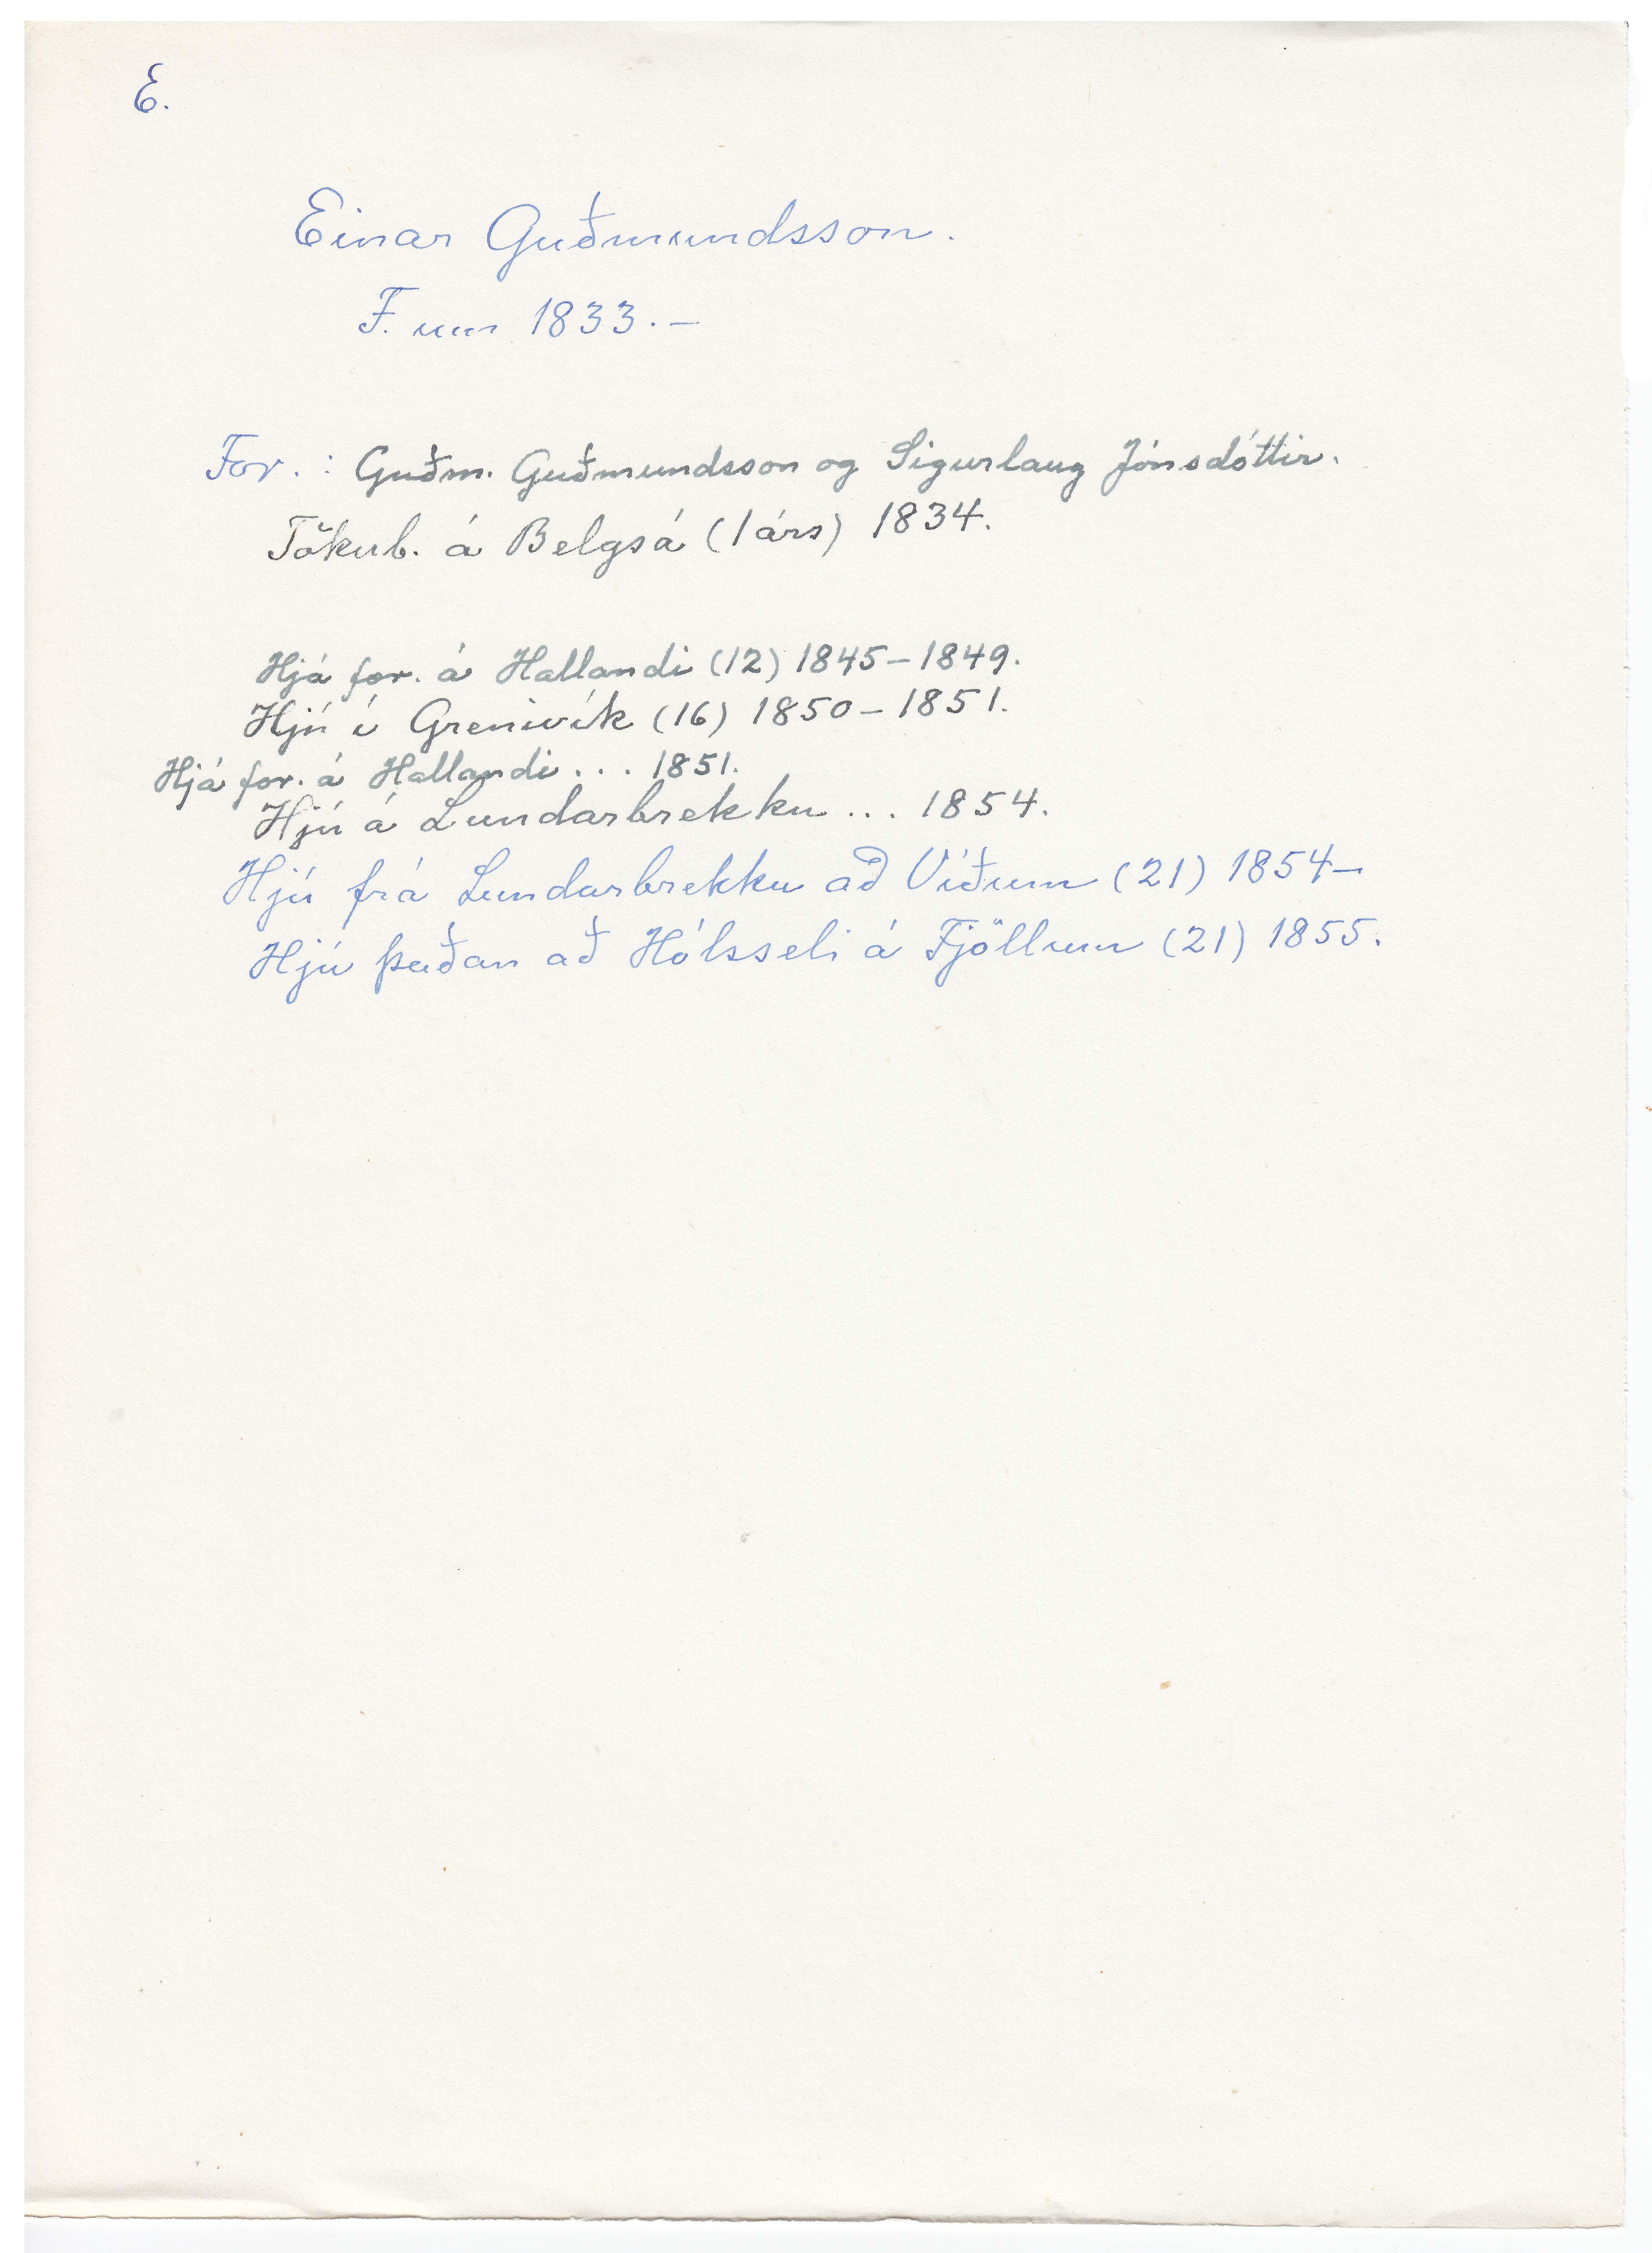 E.
Einar Guðmundsson.
F. um 1833. –
For. : Guðm. Guðmundsson og Sigurlaug Jónsdóttir.
Tökub. á Belgsá (1 árs) 1834.
Hjá for. á Hallandi (12) 1845 – 1849.
Hjú í Grenivík (16) 1850 – 1851.
Hjá for. á Hallandi . . . 1851.
Hjú á Lundarbrekku . . . 1854.
Hjú frá Lundarbrekku að Víðum (21) 1854 –
Hjú þaðan að Hólsseli á Fjöllum (21) 1855.